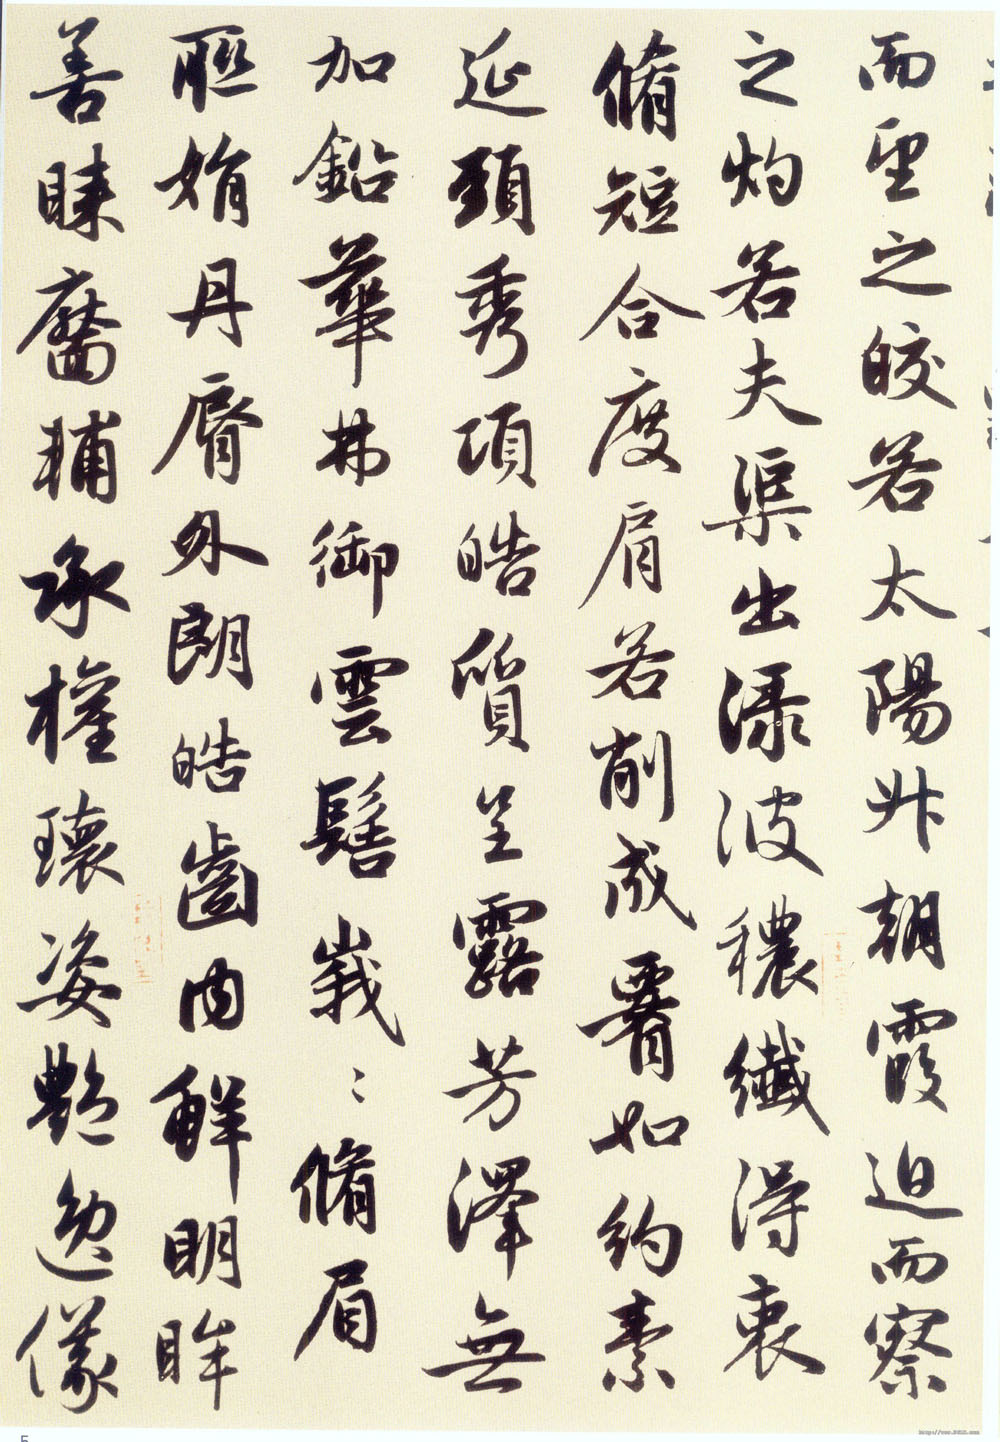 而望之皎若太陽升朝霞迫而察
之灼若夫渠出渌波穠纖得衷
脩短合度肩若削成署如約素
延頸秀項皓質呈露芳澤無
加鉛華弗御雲髻峩〻脩眉
聯娟丹脣外朗皓齒内鮮明眸
善睞靨輔承權瓌姿艷逸儀
5